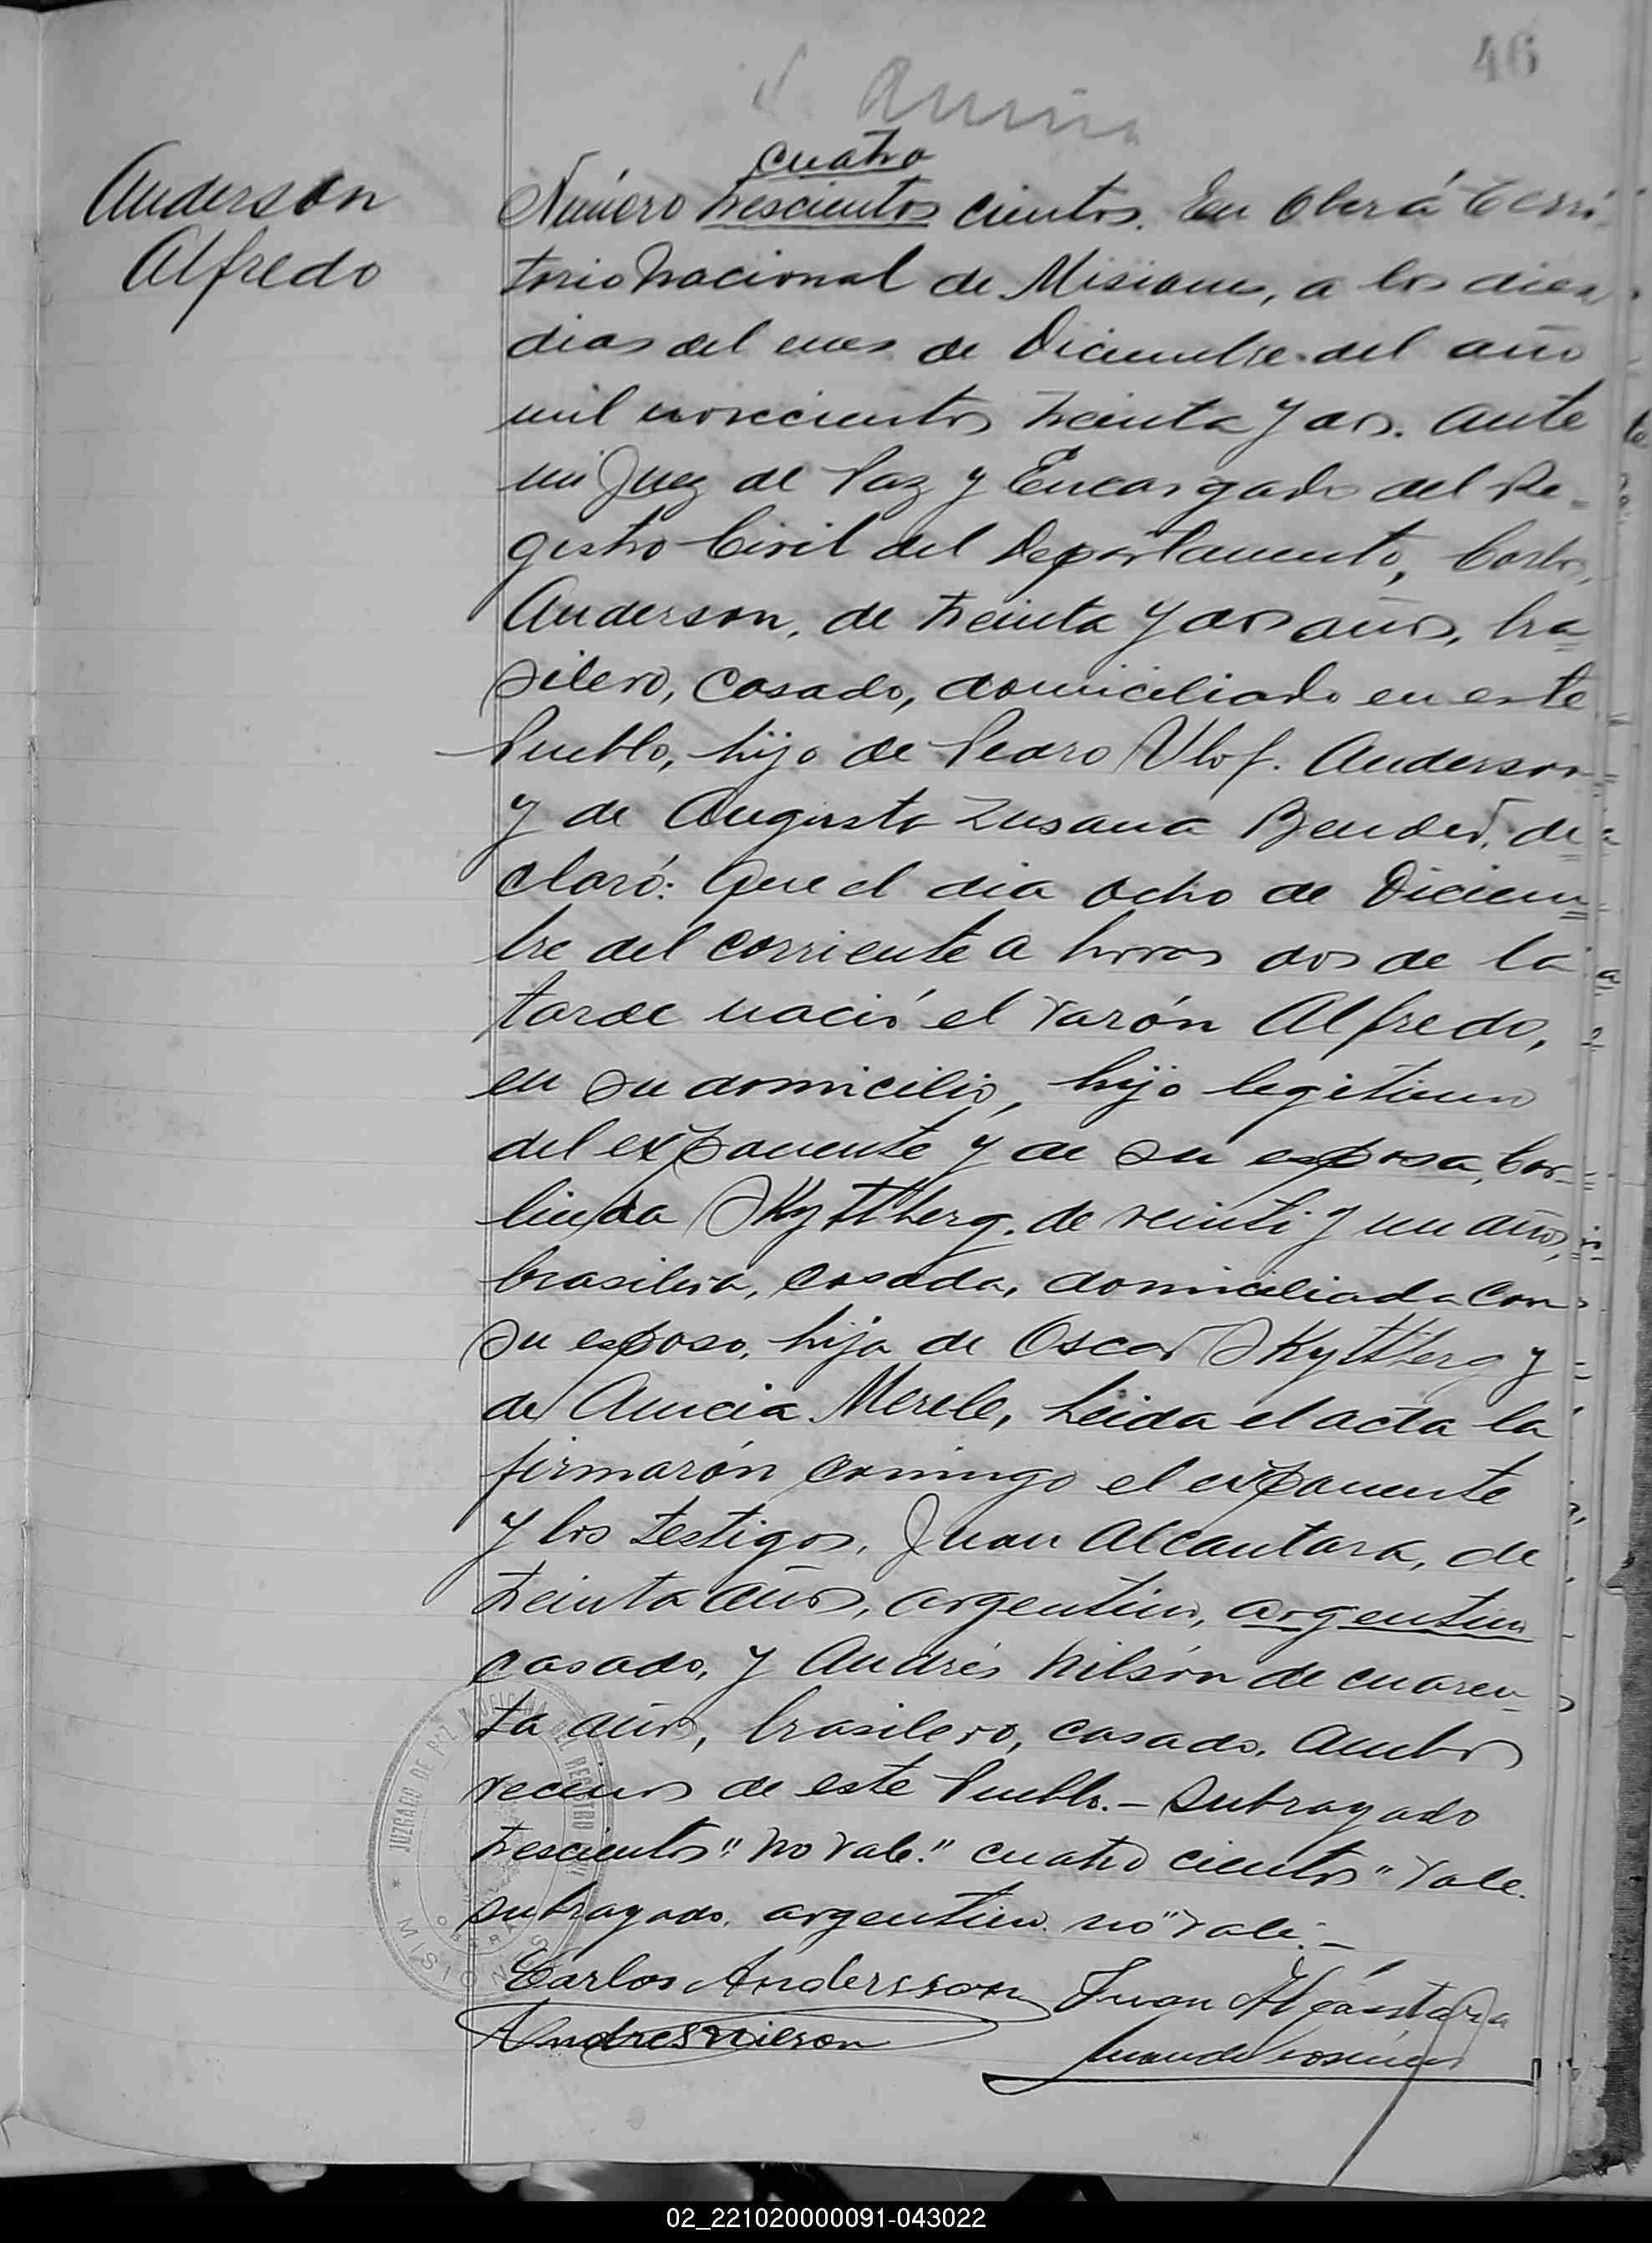 46
Anderson
Alfredo
cuatro
Número trescientos cientos. En Oberá Terri-
torio Nacional de Misiones, a los diez
dias del mes de Diciembre del año
mil novecientos treinta y dos. Ante
mi Juez de Paz y Encargado del Re-
gistro Civil del Departamento, Carlos
Anderson, de treinta y dos años, bra-
silero, casado, domiciliado en este
Pueblo, hijo de Pedro Ulof. Anderson
y de Augusta Zusana Bender, de-
claró: Que el dia ocho de Diciem-
bre del corriente a horas dos de la
tarde nació el varón Alfredo,
en su domicilio, hijo legitimo
del exponente y de su esposa, Cor-
linda Skyttberg. de veinti y un años,
brasilera, casada, domiciliada con
su esposo, hija de Oscar Skyttberg y
de Merele, Leida el acta la
firmarón conmigo el exponente
y los testigos, Juan Alcantara, de
treinta años, argentino, argentino
casado, y Andrés Nilsón de cuaren-
ta años, brasilero, casado. Ambos
vecinos de este Pueblo.- Subrayado
trescientos" no vale." cuatro cientos" vale.
subrayado. argentino. no" vale.-
Carlos Andersson Juan Alcántara
Andres Nilson
JUZGADO DE PAZ Y OFICINA DEL REGISTRO CIVIL
OBERA
* MISIONES
02_221020000091-043022